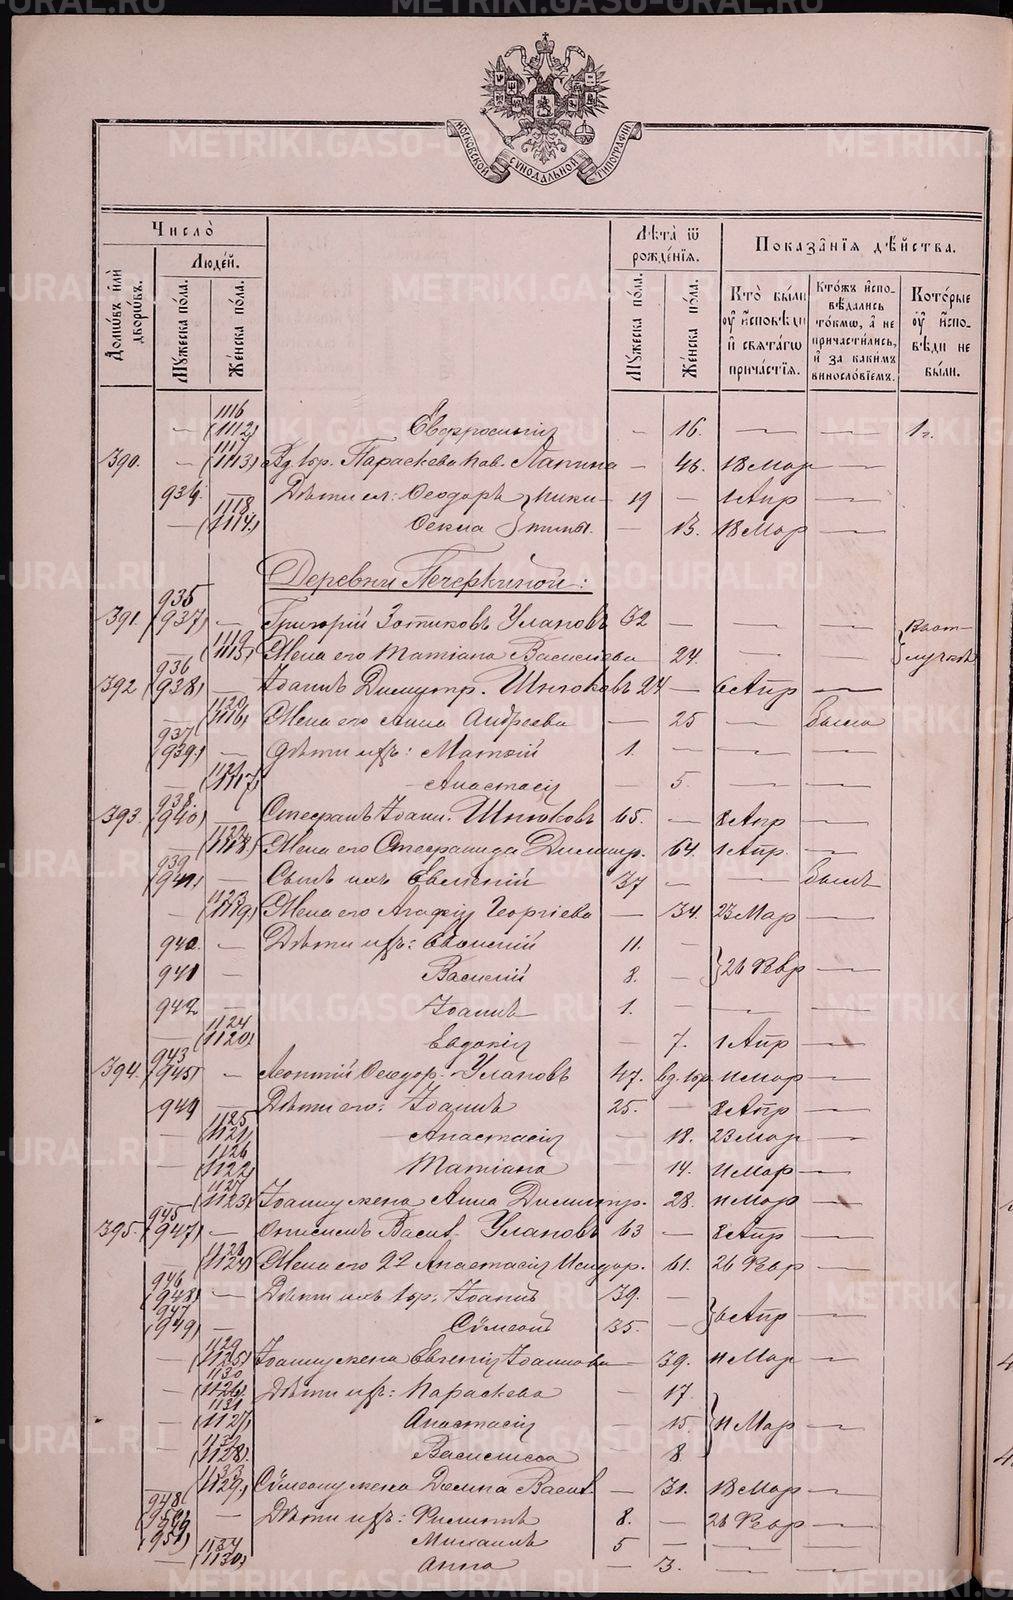 МОСКОВСКОЙ СѴНОДАЛЬНОЙ ТИПОГРАФІИ
Число̀
Людей.
Домѡвъ и҆лѝ дворѡвъ.
Мꙋжеска по́ла.
Же́нска по́ла.
Лѣ̑та ѿ рожде́нїя.
Мꙋжеска по́ла.
Же́нска по́ла.
Показа̑нїя дѣ́йства.
Кто̀ бы́ли ᲂу҆ и҆сповѣди и҆ свѧта́гѡ прича́стїѧ.
Кто́жъ и҆спо-вѣ́дались то́кмѡ, а҆ не причасти́лись, и҆ за каки́мъ винослові́емъ.
Кото́рые ᲂу҆ и҆спо-вѣди не бы́ли.
— 1116 (1112) Евфросинія — 16. — — 1 г.
390. — 1117 (1113) Вд. вр. Параскева Пав. Лапина — 46. 18 Мар —
934. — Дѣти ея: Ѳеодоръ } Ники- 19 — 1 Апр —
— 1118 (1114) Ѳекла } тины. — 13. 18 Мар —
Деревни Печеркиной:
391. 935 (937) — Григорій Зотиковъ Улановъ 32 — — — } Въ от-
— 1119 (1115) Жена его Татіана Васильева — 24. — — лучкѣ
392 936 (938) — Іоаннъ Димитр. Шнюковъ 24 — 6 Апр —
— 1120 (1116) Жена его Анна Андреева — 25 — Была
937 (939) — Дѣти ихъ: Матѳій 1. — — —
— 1121 (1117) Анастасія — 5. — —
393. 938 (940) — Стефанъ Іоанн. Шнюковъ 65. — 8 Апр —
— 1122 (1118) Жена его Стефанида Димитр. — 64. 1 Апр. —
939 (941) — Сынъ ихъ Евмений 37 — — Былъ
— 1123 (1119) Жена его Агафія Георгіева — 34. 23 Мар —
940. — Дѣти ихъ: 11. —
941 — Василій 8. — } 26 Февр —
942 — Іоаннъ 1. — — —
— 1124 (1120) Евдокія — 7. 1 Апр —
394. 943 (945) — Леонтій Ѳеодор. Улановъ 47. вд. вр. 11 Мар —
944 — Дѣти его: Іоаннъ 25. — 8 Апр —
— 1125 (1121) Анастасія — 18. 23 Мар —
— 1126 (1122) Татіана — 14. 11 Мар —
1127 (1123) Іоанну жена Анна Димитр. — 28. 11 Мар —
395. 945 (947) — Онисимъ Васил. Улановъ 63 — 8 Апр —
1128 (1124) Жена его 2я Анастасія Исидор. — 61. 26 Февр —
946 (948) — Дѣти ихъ вр: Іоаннъ 39. —
947 (949) — Сѵмеонъ 35. — } 6 Апр —
— 1129 (1125) Іоанну жена Евгенія Іоаннова — 39. 11 Мар —
— 1130 (1126) Дѣти ихъ: Параскева — 17.
— 1131 (1127) Анастасія — 15 } 11 Мар —
— 1132 (1128) Василисса — 8
— 1133 (1129) Сѵмеону жена Домна Васил. — 31. 18 Мар —
948 (950) — Дѣти ихъ: Филиппъ 8. — 26 Февр —
949 (951) Михаилъ 5 — — —
— 1134 (1130) Анна — 3. — —